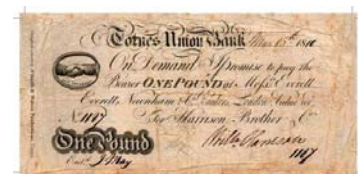 Torne's Union Bank Mar. 15th 1810
On Demand I Promise to pay the
Bearer ONE POUND at Messrs. Everett
Everett, Newnham & Co. London Value recd.
No. 1107 For Harrison, Brother & Co.
One Pound
Entd. J May
1107